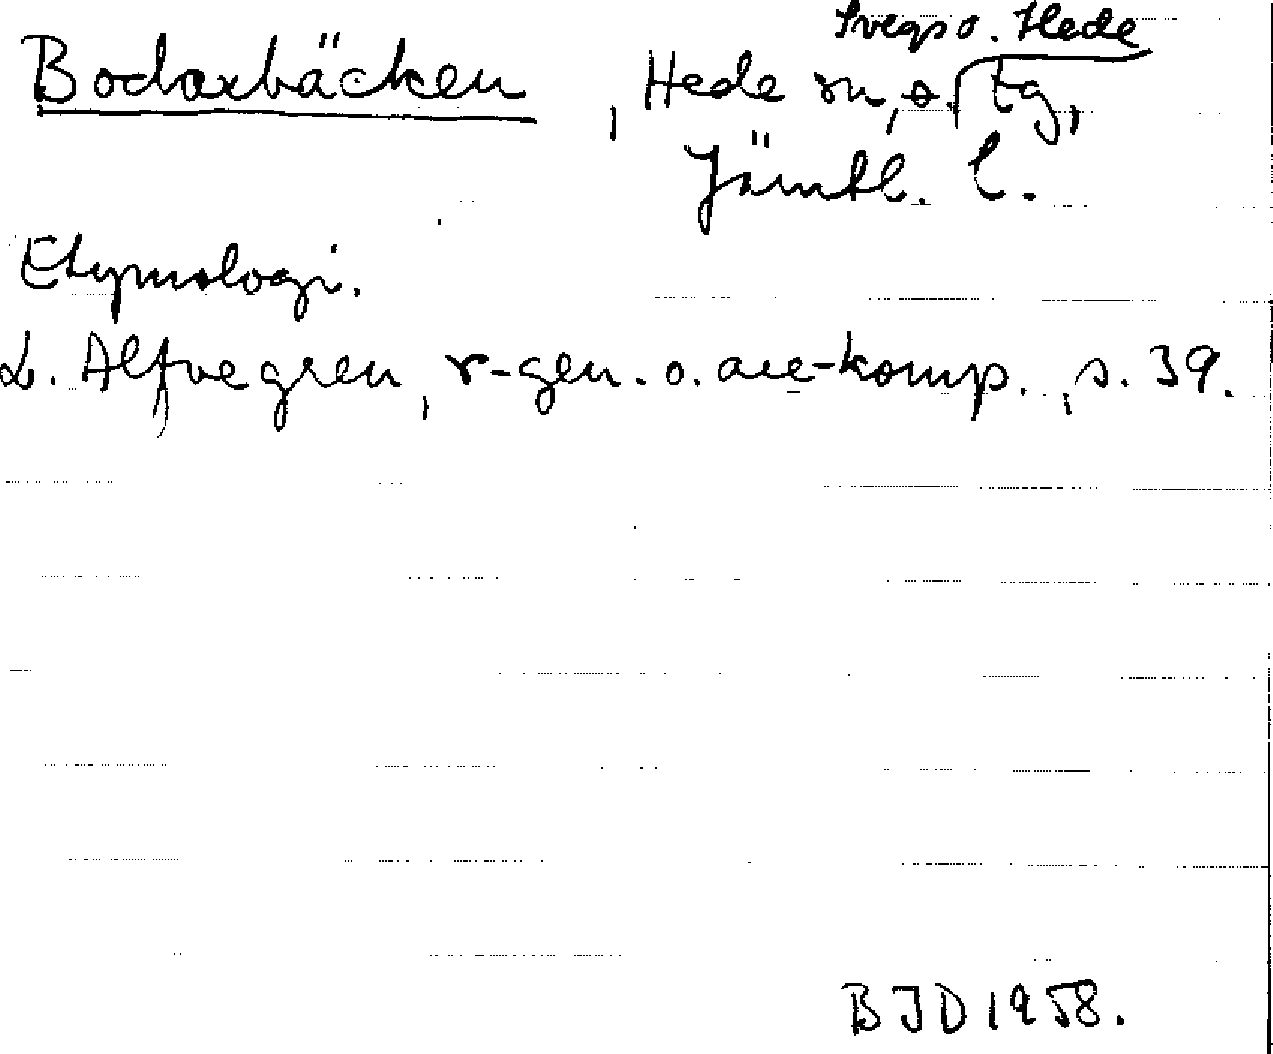 Svegs o. Hede
Bodarbäcken, Hede sn, o. tg,
Jämtl. l.
Etymologi.
L. Alfvegren, r-gen. o. are-komp., s. 39.
BJD 1958.